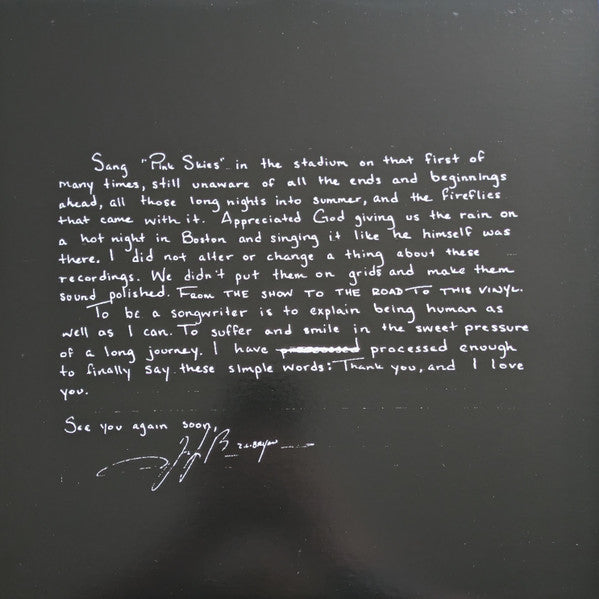 Sang "Pink Skies" in the stadium on that first of
many times, still unaware of all the ends and beginnings
ahead, all those long nights into summer, and the fireflies
that came with it. Appreciated God giving us the rain on
a hot night in Boston and singing it like he himself was
there. I did not alter or change a thing about these
recordings. We didn't put them on grids and make them
sound polished. FROM THE SHOW TO THE ROAD TO THIS VINYL.
To be a songwriter is to explain being human as
well as I can. To suffer and smile in the sweet pressure
of a long journey. I have processed enough
to finally say these simple words: Thank you, and I love
you.
See you again soon,
Z.L. BRYAN